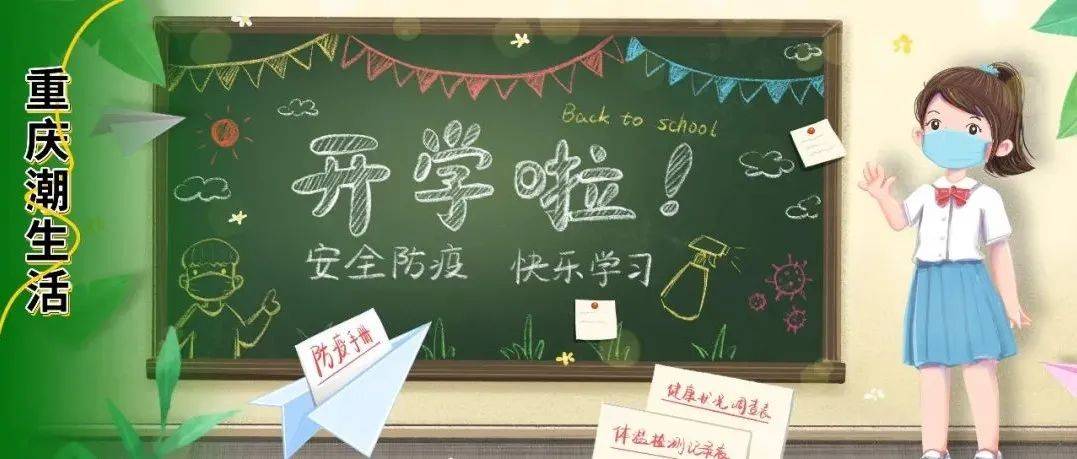 重庆潮生活
Back to school
开学啦！
安全防疫 快乐学习
防疫手册
健康状况调查表
体温检测记录表